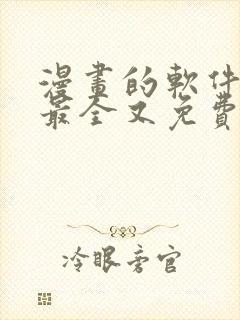 漫畫的軟件
最全又免費
冷眼旁官